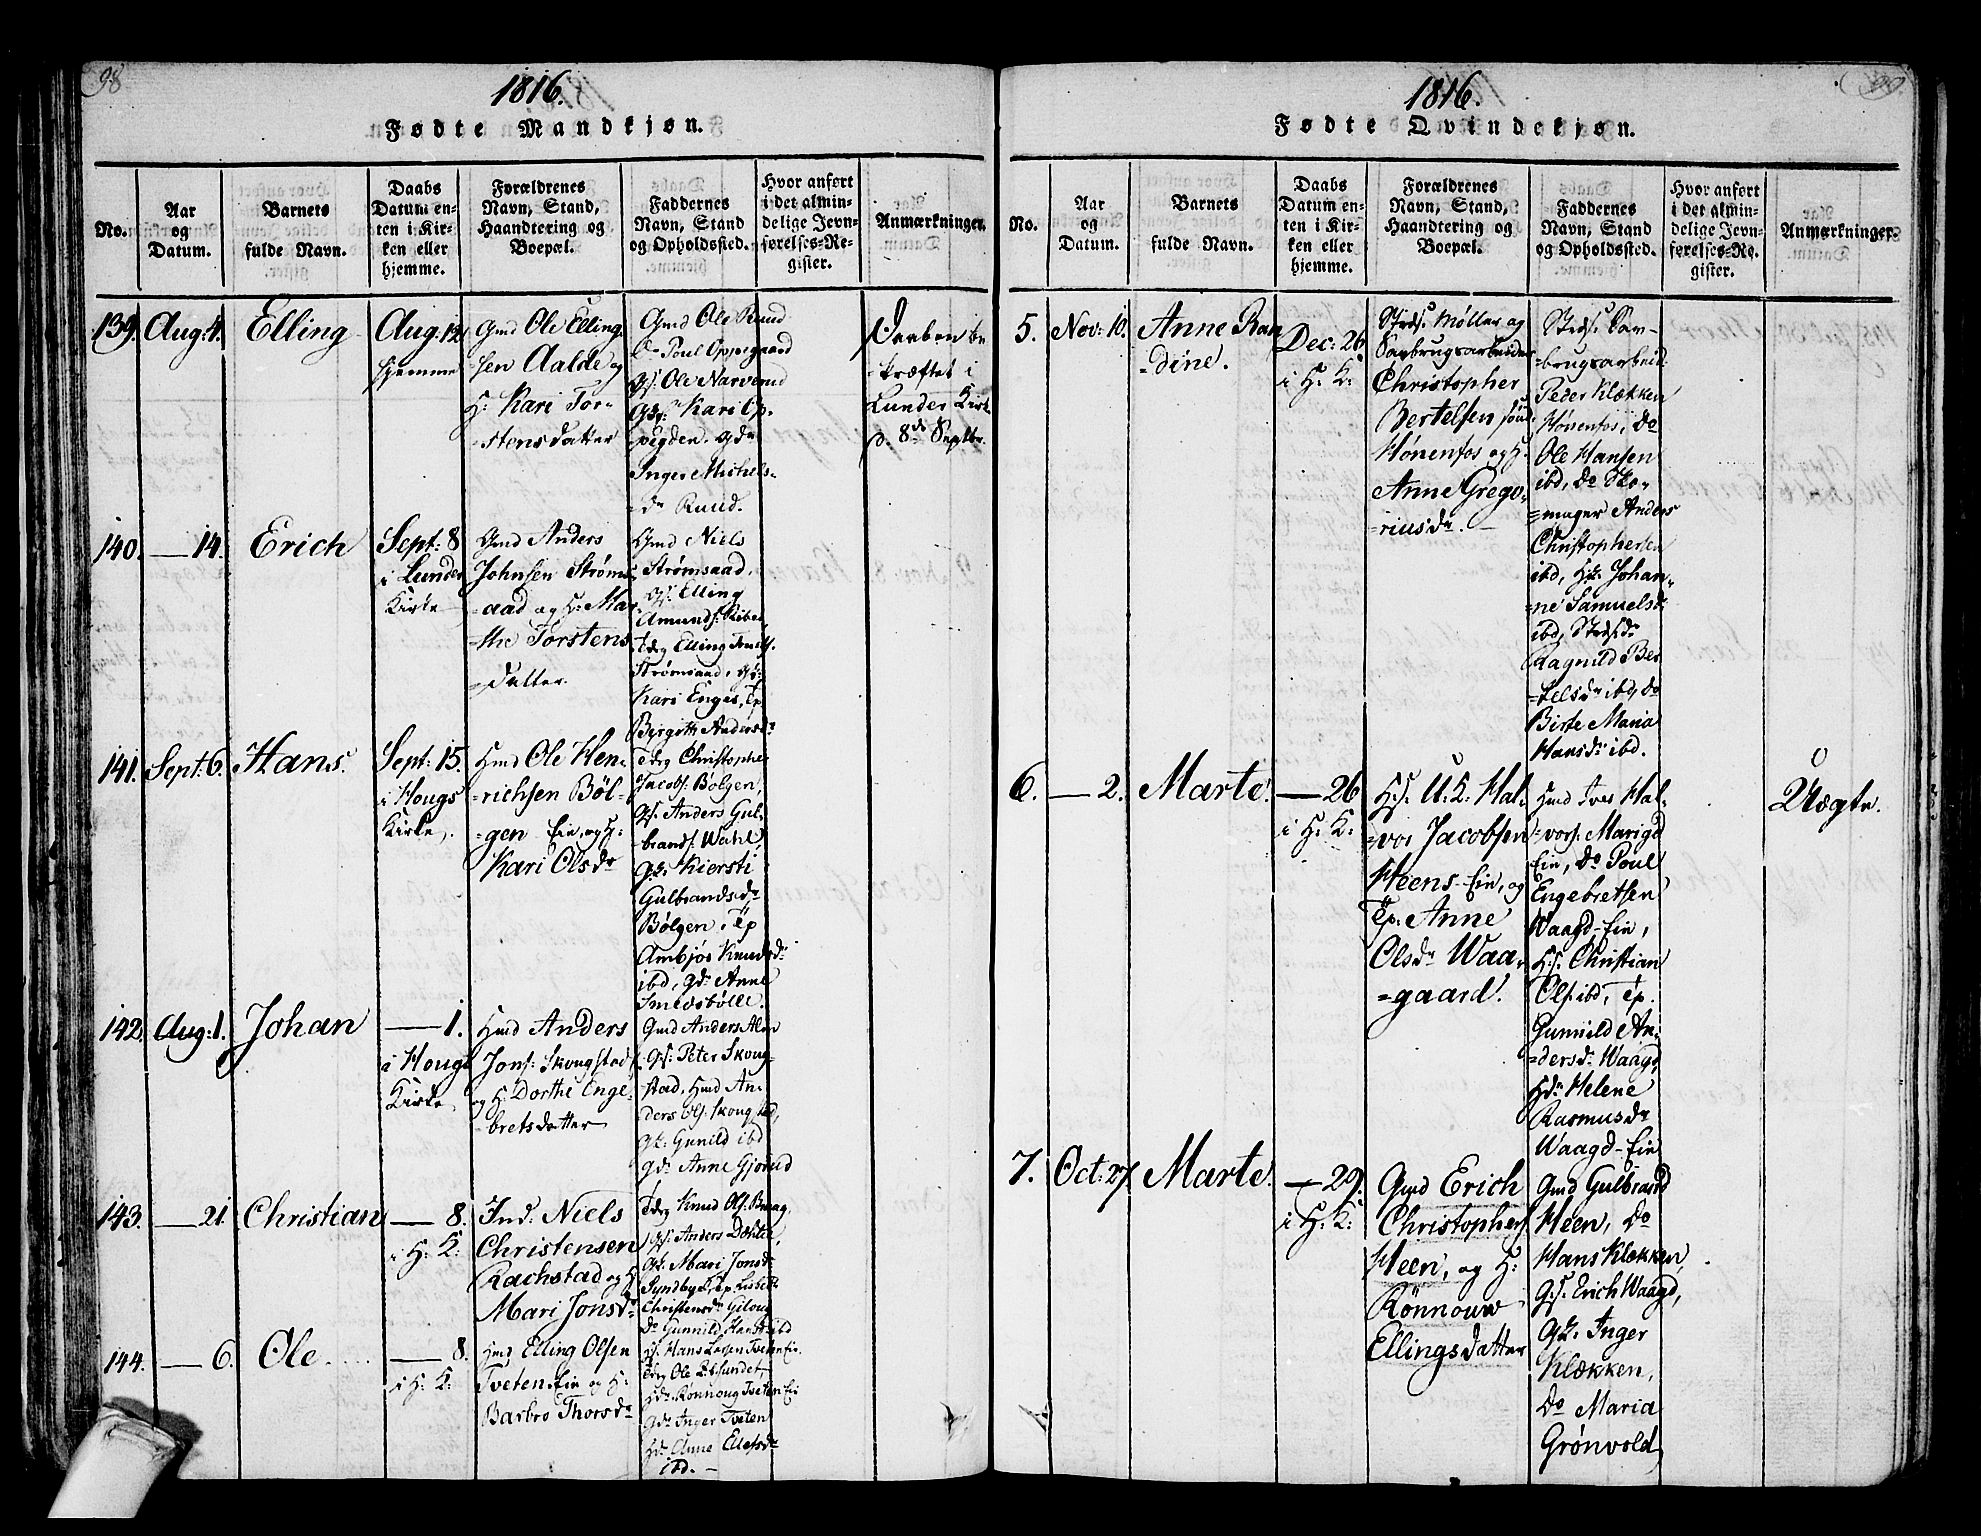 98
1816.
Fødte Mandkjøn.
No.
Aar
og
Datum.
Barnets
fulde Navn.
Daabs
Datum en-
ten i Kir-
ken eller
hjemme.
Forældrenes
Navn, Stand,
Haandtering og
Boepæl.
Faddernes
Navn, Stand
og Opholdssted.
Hvor anført
i det almin-
delige Jevn-
førelses-Re-
gister.
Anmærkninger.
139. Aug: 4.
Elling
Aug. 12
hjemme
Gmd Ole Elling-
sen Aalde og
H: Kari Tor-
stensdatter
Gmd Ole Ruud
Do Poul Oppegaard
Gs. Ole Narverud
Gk: Kari Op-
pegden. Gdr
Inger Michels-
dr Ruud.
Daaben be
kræftet i
Lunder Kirk
d. 8de Septbr.
140. — 14.
Erich
Sept: 8
i Lunder
Kirke
Gmd Anders
Johnsen Strøms
aad og H: Mar
the Torstens
datter
Gmd Niels
Strømsaad,
Gs. Elling
Amunds.
Elling
Strømsaad,
Kari Enges, Tp
Birgith Andersdr
141. Sept: 6.
Hans.
Sept: 15.
i Hougs
Kirke,
Hmd Ole Hen-
richsen Bøl-
gen Ein, og H:
Kari Olsdr
Christopher
Jacobs: Bølgen,
Gs. Anders Gul-
brands. Wahl,
Gk: Kiersti
Gulbrandsdr
Bølgen, Tp
Ambjør Knudsdr
ibd, Gdr Anne
Smedsbølle.
142. Aug: 1.
Johan
— 1.
i Hougs
Kirke
Hmd Anders
Jons: Skougstad,
og H: Dorthe Enge-
bretsdatter
Gmd Anders Alm
Gs: Peter Skoug-
stad, Hmd An-
ders Ols. Skougstad,
Gk: Gunild ibd
Gdr Anne Gjorud
143. — 21.
Christian
— 8.
i H: K:
Ind: Niels
Christensen
Rachstad og H
Mari Jonsdr
Knud Ols:
Gs: Anders Dokter,
Gk: Mari Jonsdr
Tp Lisbeth
Christensdr
Do Gunnild Hansdr ibd
144. — 6.
Ole.
— 8.
i H: K:
Hmd Elling Olsen
Tveten Ein og H:
Barbro Thorsdr
Hs. Hans Larsen Tveten Ein.
Ole
Hdr Rønnoug Tveten Ei
Gdr Inger Tveten
Hdr Anne Ellefsdr
ibd. —
99
1816.
Fødte Qvindekjøn.
No.
Aar
og
Datum.
Barnets
fulde Navn.
Daabs
Datum en-
ten i Kir-
ken eller
hjemme.
Forældrenes
Navn, Stand,
Haandtering og
Boepæl.
Faddernes
Navn, Stand
og Opholdssted.
Hvor anført
i det almin-
delige Jevn-
førelses-Re-
gister.
Anmærkninger.
5. Nov: 10.
Anne Ran
dine.
Dec: 26
i H: K:
Møller og
Saugbrugsarbeider
Christopher
Bertelsen
Hønenfos og H:
Anne Grego-
riusdr. —
brugsarbeid:
Peder Klækken
Hønenfos, Do
Ole Hansen
ibd, Do Sko-
mager Anders
Christophersen
ibd, Hk: Johan-
ne Samuelsdr
ibd,
Ragnild Ber
telsdr ibd, Do
Birte Maria
Hansdr ibd.
6. — 2.
Marte.
— 26
i H: K:
Hs. U: K: Hal-
vor Jacobsen
Heens-Ein, og
Tp: Anne
Olsdr Waa-
gaard.
Hmd Iver Hal-
vors. Marigd
Ein, Do Poul
Engebretsen
Waagd-Ein,
Hs. Christian
Ols ibd, Tp.
Gunnild An-
dersdr Waagd,
Hdr Helene
Rasmusdr
Waagd-Ein
Uægte.
7. Oct: 27.
Marte.
— 29.
i H: K:
Gmd Erich
Christophers
Heen, og H:
Rönnouw
Ellingsdatter
Gmd Gulbrand
Heen, Do
Hans Klækken,
Gs. Erich Waagd,
Gk: Inger
Klækken,
Do Maria
Grønvold